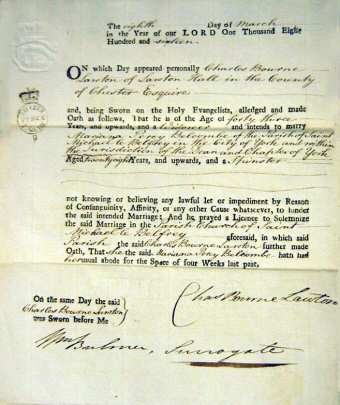 The eighth Day of March
in the Year of our LORD One Thousand Eight
Hundred and sixteen.
ON which Day appeared personally Charles Bourne
Lawton of Lawton Hall in the County
of Chester Esquire
and, being Sworn on the Holy Evangelists, alledged and made
Oath as follows, That he is of the Age of forty three
Years, and upwards, and a Widower and intends to marry
Mariana Percy Belcombe of the Parish of Saint
Michael le Belfrey in the City of York and within
the Jurisdiction of the Dean & Chapter of York
Aged twenty eight Years, and upwards, and a Spinster
not knowing or believing any lawful let or impediment by Reason
of Consanguinity, Affinity, or any other Cause whatsoever, to hinder
the said intended Marriage: And he prayed a Licence to Solemnize
the said Marriage in the Parish Church of Saint
Michael le Belfrey aforesaid, in which said
Parish the said Charles Bourne Lawton further made
Oath, That she the said Mariana Percy Belcombe hath had
usual abode for the Space of four Weeks last past.
On the same Day the said
Charles Bourne Lawton
was Sworn before Me
Chas Bourne Lawton
Wm Bulmer, Surrogate